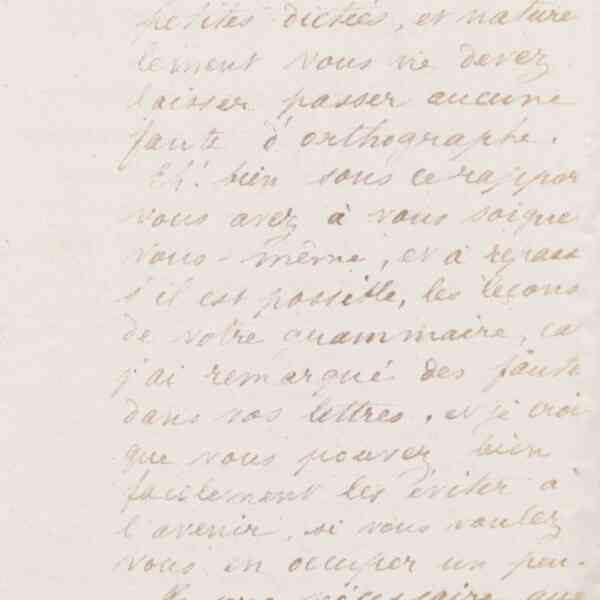 petites dictées, et nature
lement vous ne devez
laisser passer aucune
faute d'orthographe.
Eh! bien sous ce rappor
vous avez à vous soigne
vous-même, et à repass
s'il est possible, les leçons
de votre grammaire, ca
j'ai remarqué des faute
dans vos lettres, et je croi
que vous pouvez bien
facilement les éviter à
l'avenir, si vous voulez
vous en occuper un peu.
nécessaire que